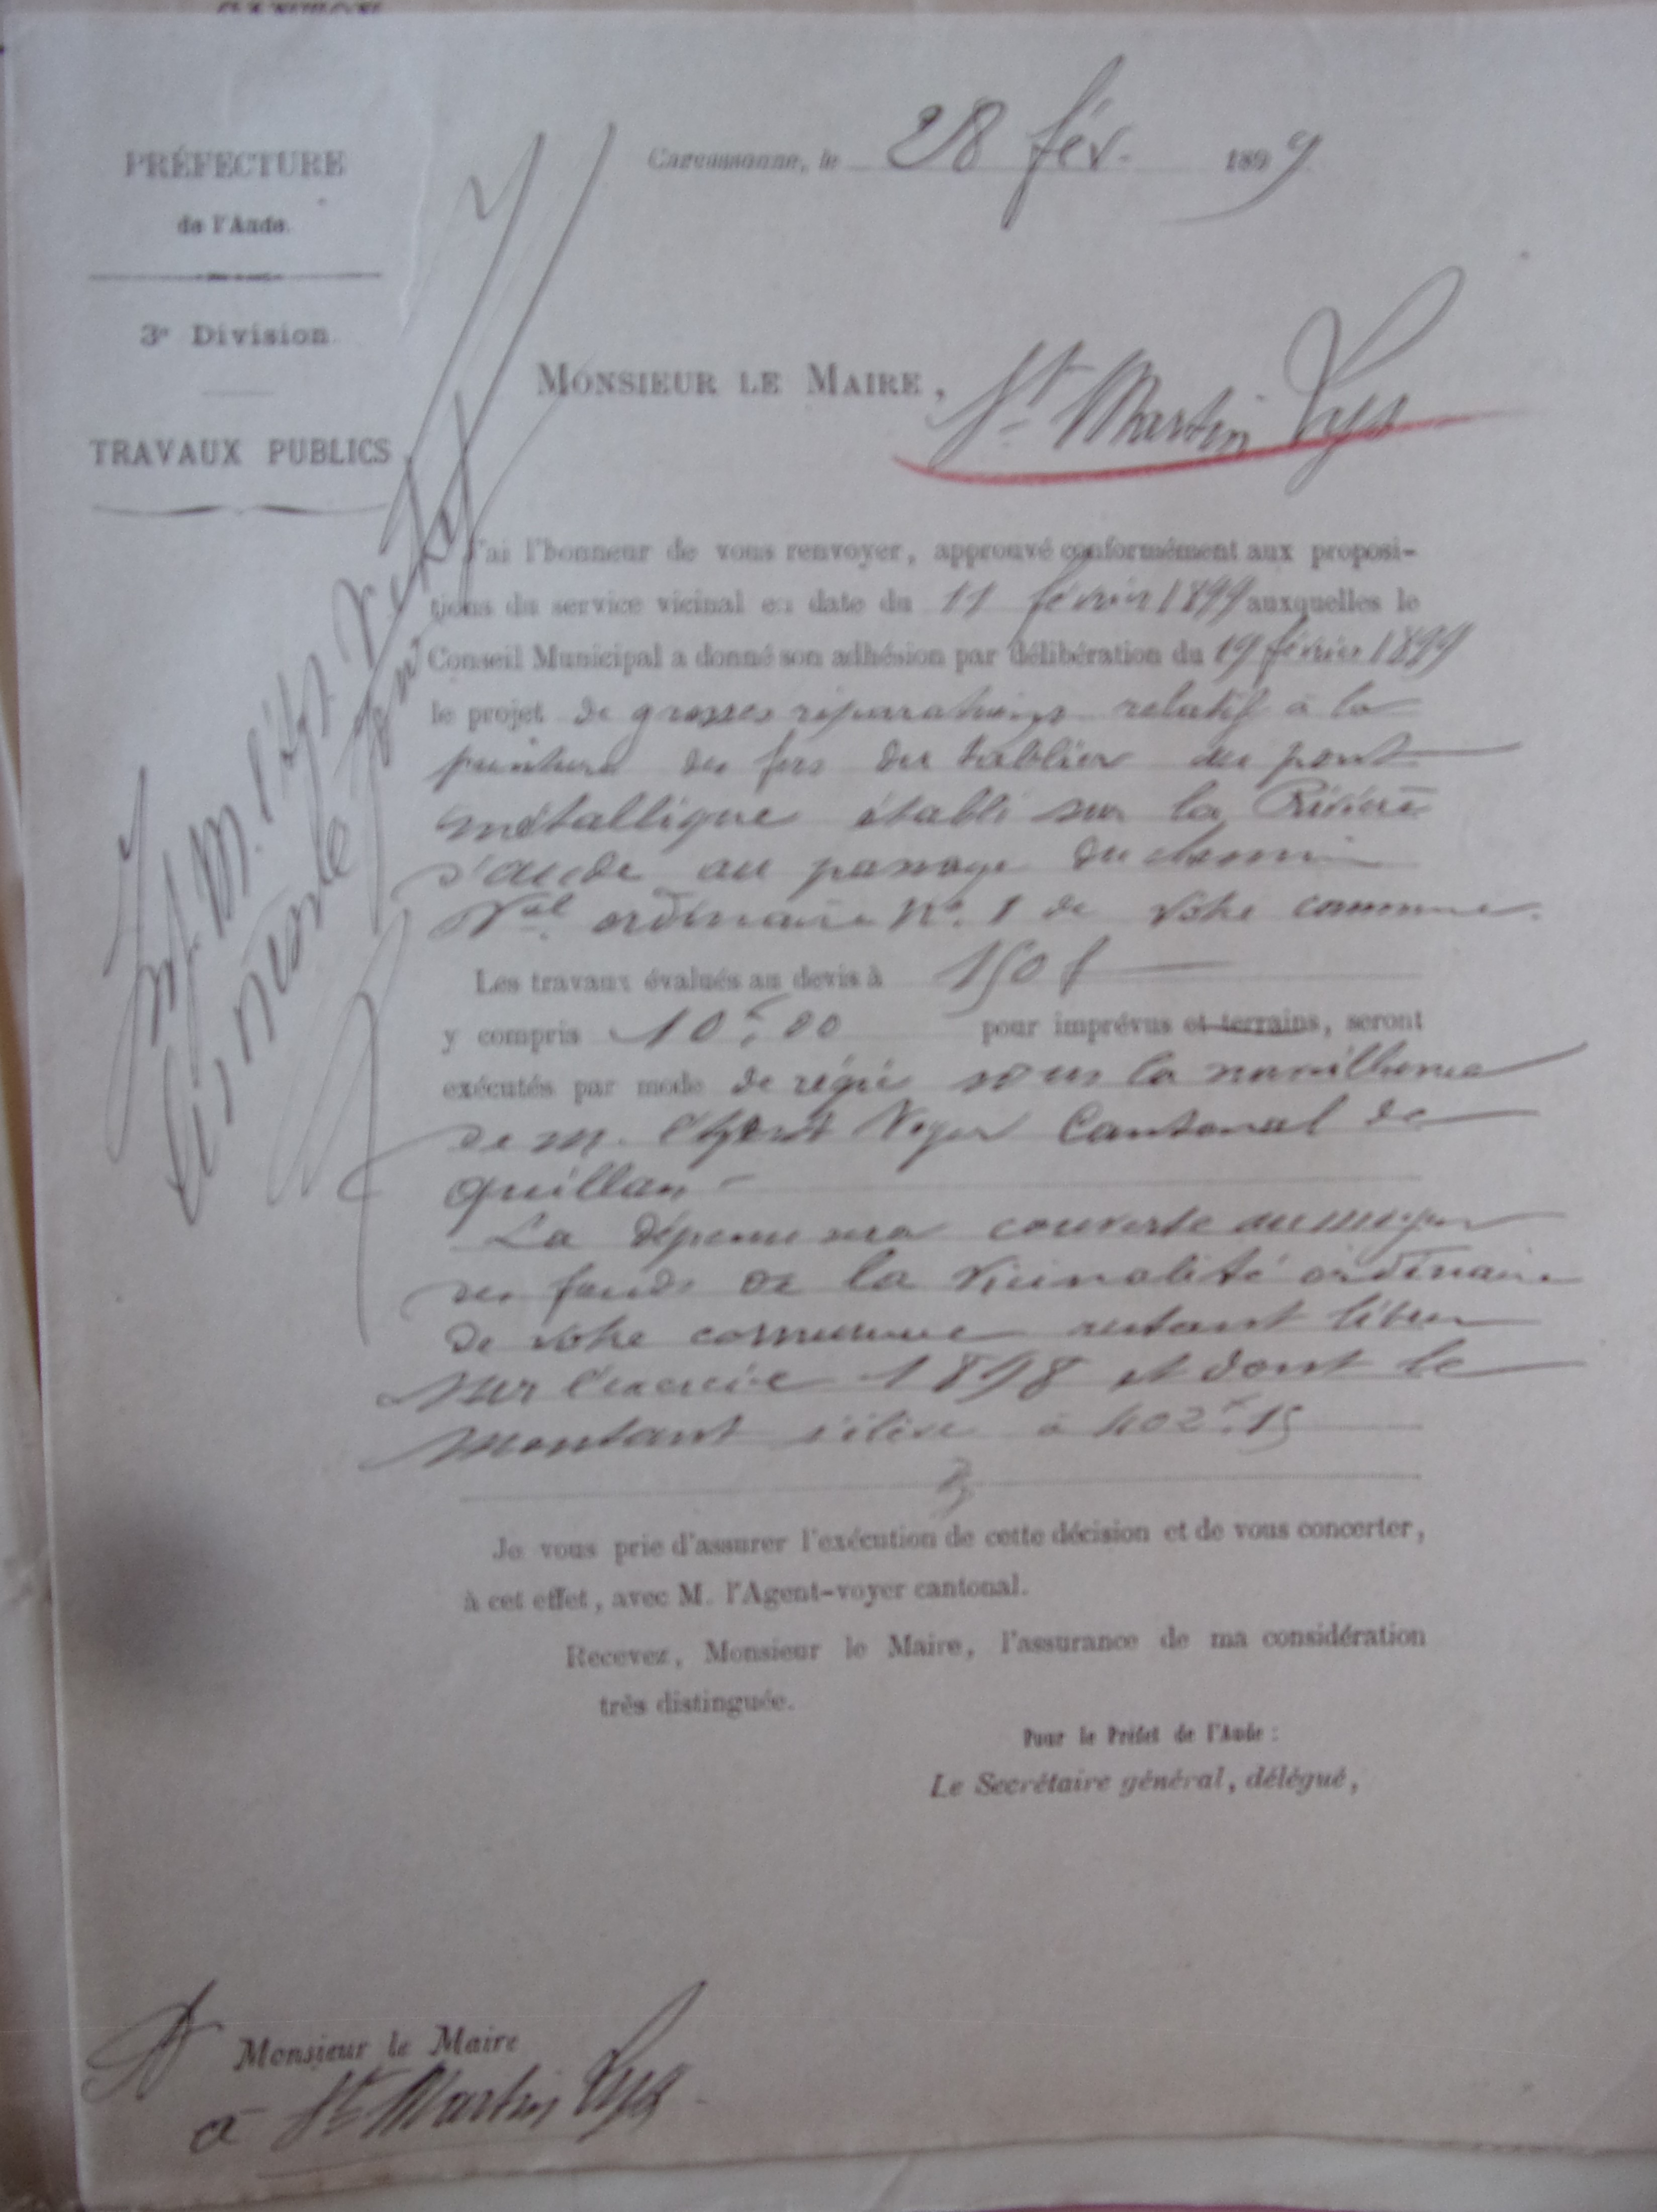 PRÉFECTURE
de l'Aude.
3e Division.
TRAVAUX PUBLICS
Carcassonne, le 28 fév. 1899
MONSIEUR LE MAIRE, St Martin Lys
J'ai l'honneur de vous renvoyer, approuvé conformément aux proposi-
tions du service vicinal en date du 11 février 1899 auxquelles le
Conseil Municipal a donné son adhésion par délibération du 19 février 1899
le projet de grosses réparations relatif à la
peinture des fers du tablier du pont
métallique établi sur la Rivière
d'aude au passage du chemin
Val ordinaire No. 1 de votre commune.
Les travaux évalués au devis à 150 f
y compris 10f,00 pour imprévus et terrains, seront
exécutés par mode de régie sous la surveillance
de M. l'Agent Voyer Cantonal de
Quillan
La dépense sera couverte au moyen
des fonds de la Vicinalité ordinaire
de votre commune restant libres
sur l'exercice 1898 et dont le
montant s'élève à 402f.15
Je vous prie d'assurer l'exécution de cette décision et de vous concerter,
à cet effet, avec M. l'Agent-voyer cantonal.
Recevez, Monsieur le Maire, l'assurance de ma considération
très distinguée.
Pour le Préfet de l'Aude :
Le Secrétaire général, délégué,
A Monsieur le Maire
à St Martin Lys